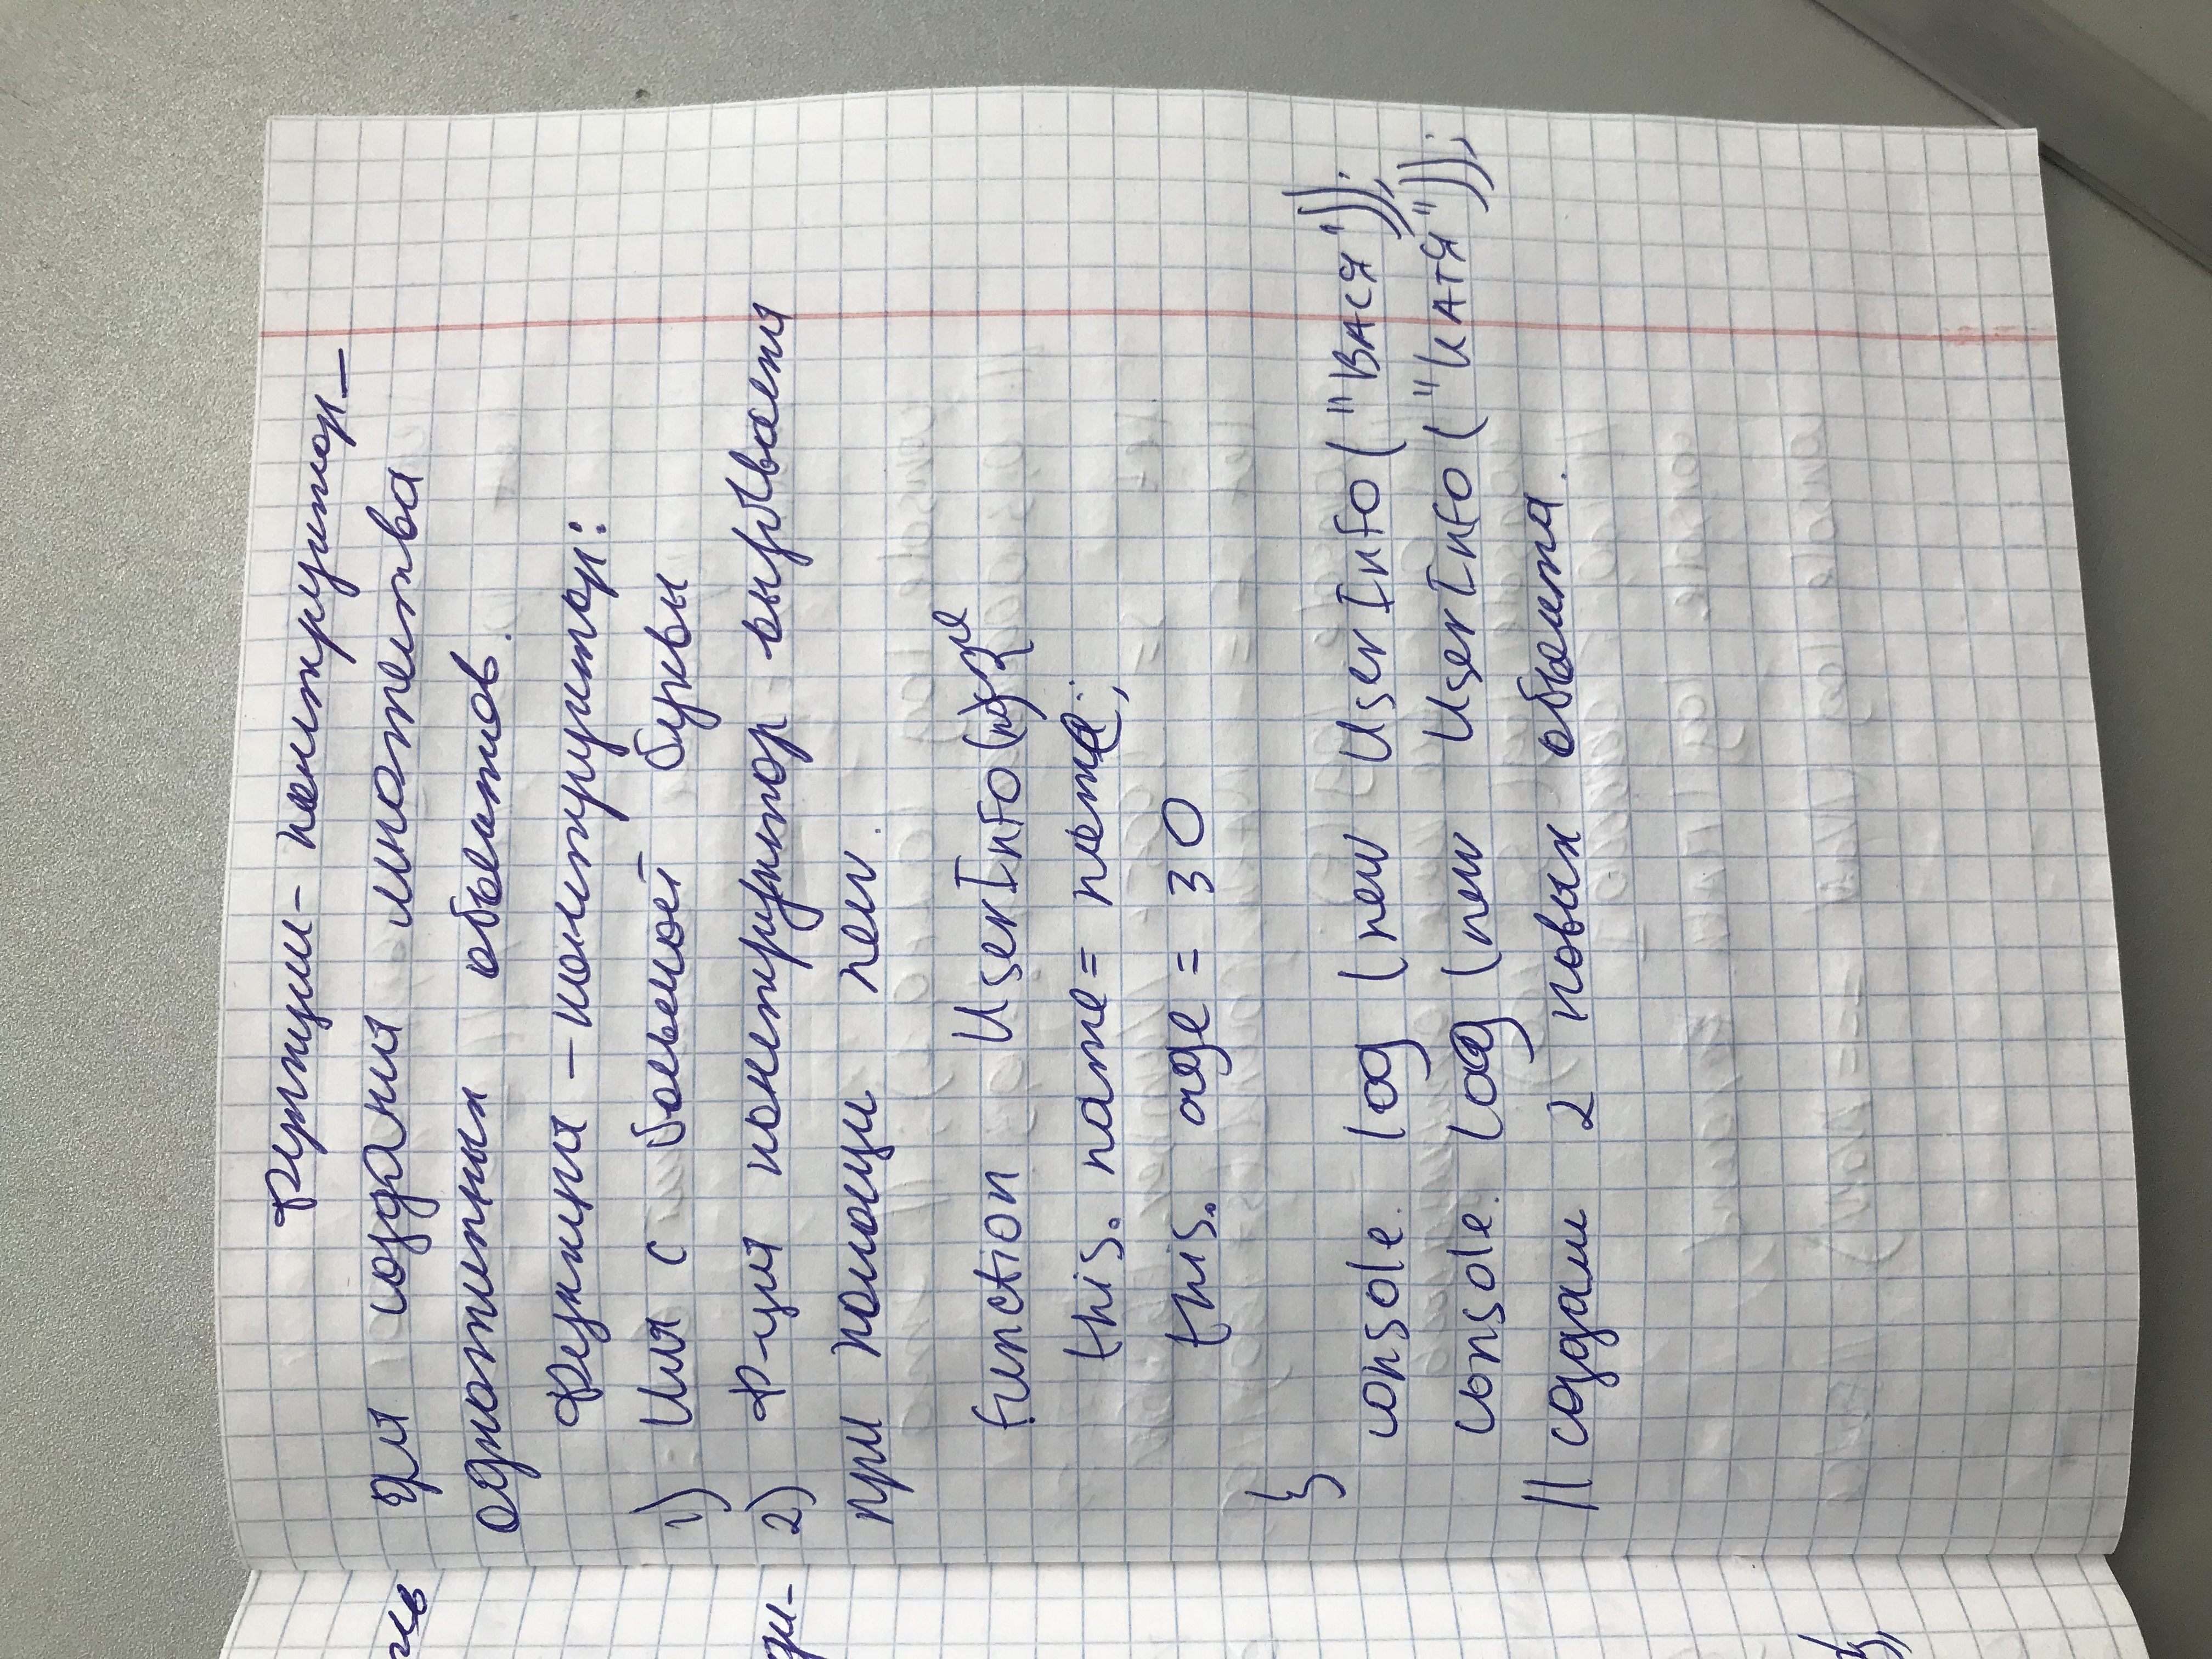 Функции-конструктор_
для создания множества
однотипных объектов.
Функция - конструктор:
1) Имя с большой буквы
2) Ф-ция конструктор вызывается
при помощи new.
function UserInfo(name){
this. name = name;
this. age = 30
}
console. log (new UserInfo("ВАСЯ"));
console. log (new UserInfo("КАТЯ"));
// создали 2 новых объекта.